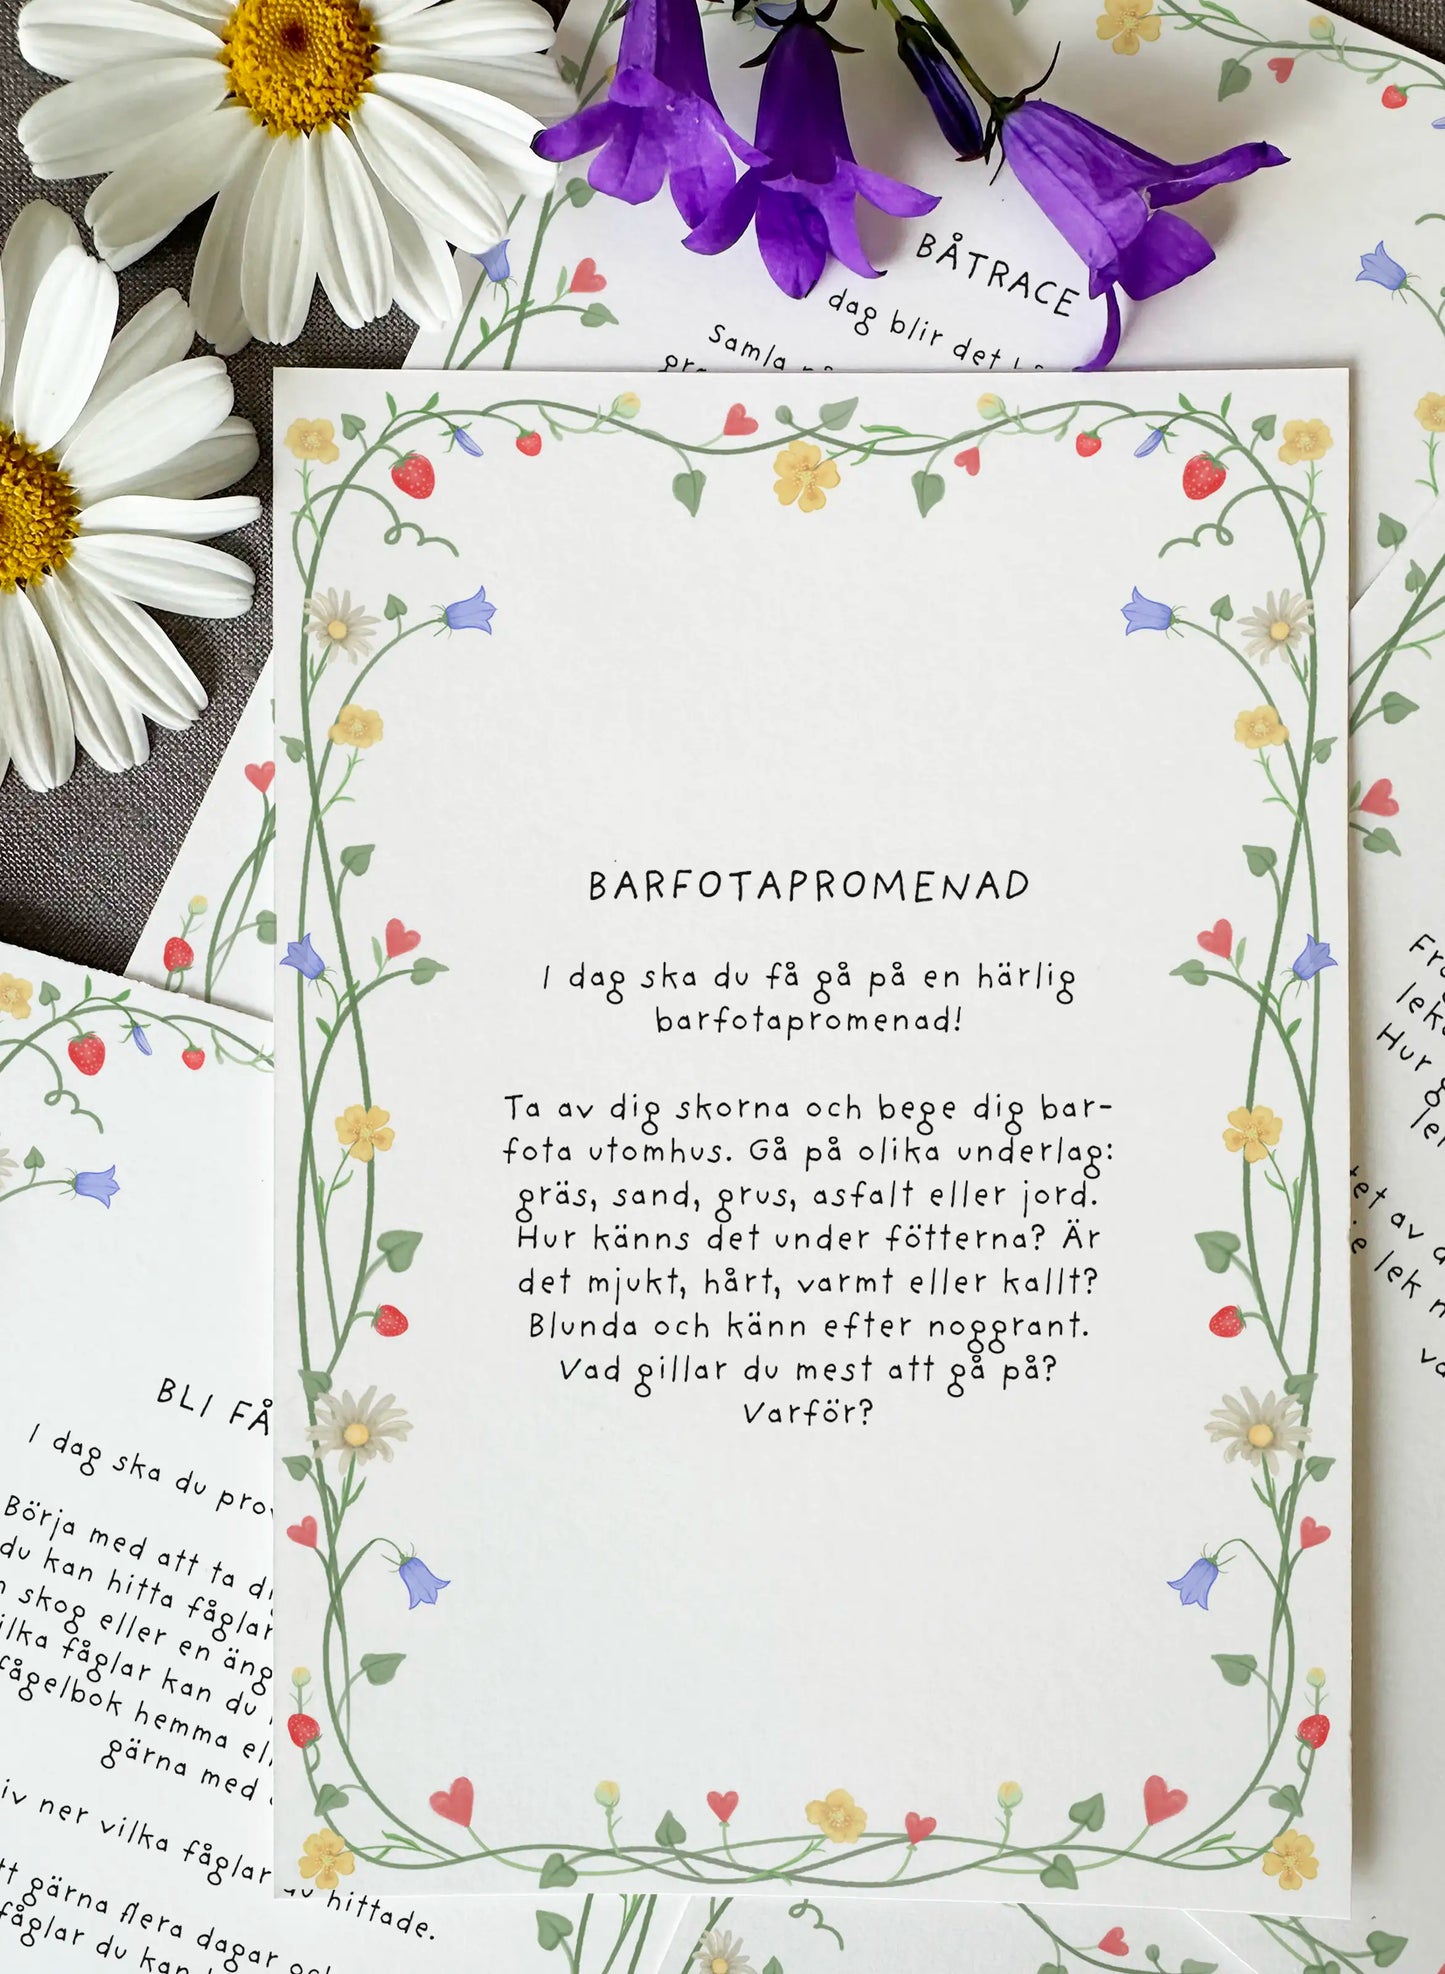 BÅTRACE
dag blir det
Samla
BARFOTAPROMENAD
I dag ska du få gå på en härlig
barfotapromenad!
Ta av dig skorna och bege dig bar-
fota utomhus. Gå på olika underlag:
gräs, sand, grus, asfalt eller jord.
Hur känns det under fötterna? Är
det mjukt, hårt, varmt eller kallt?
Blunda och känn efter noggrant.
Vad gillar du mest att gå på?
Varför?
BLI FÅ
I dag ska du pro
Börja med att ta di
du kan hitta fåglar
skog eller en äng
ilka fåglar kan du
fågelbok hemma el
gärna med
iv ner vilka fåglar du hittade.
tt gärna flera dagar oc
fåglar du kan
Fra
lek
Hur g
le
et av d
e lek n
va